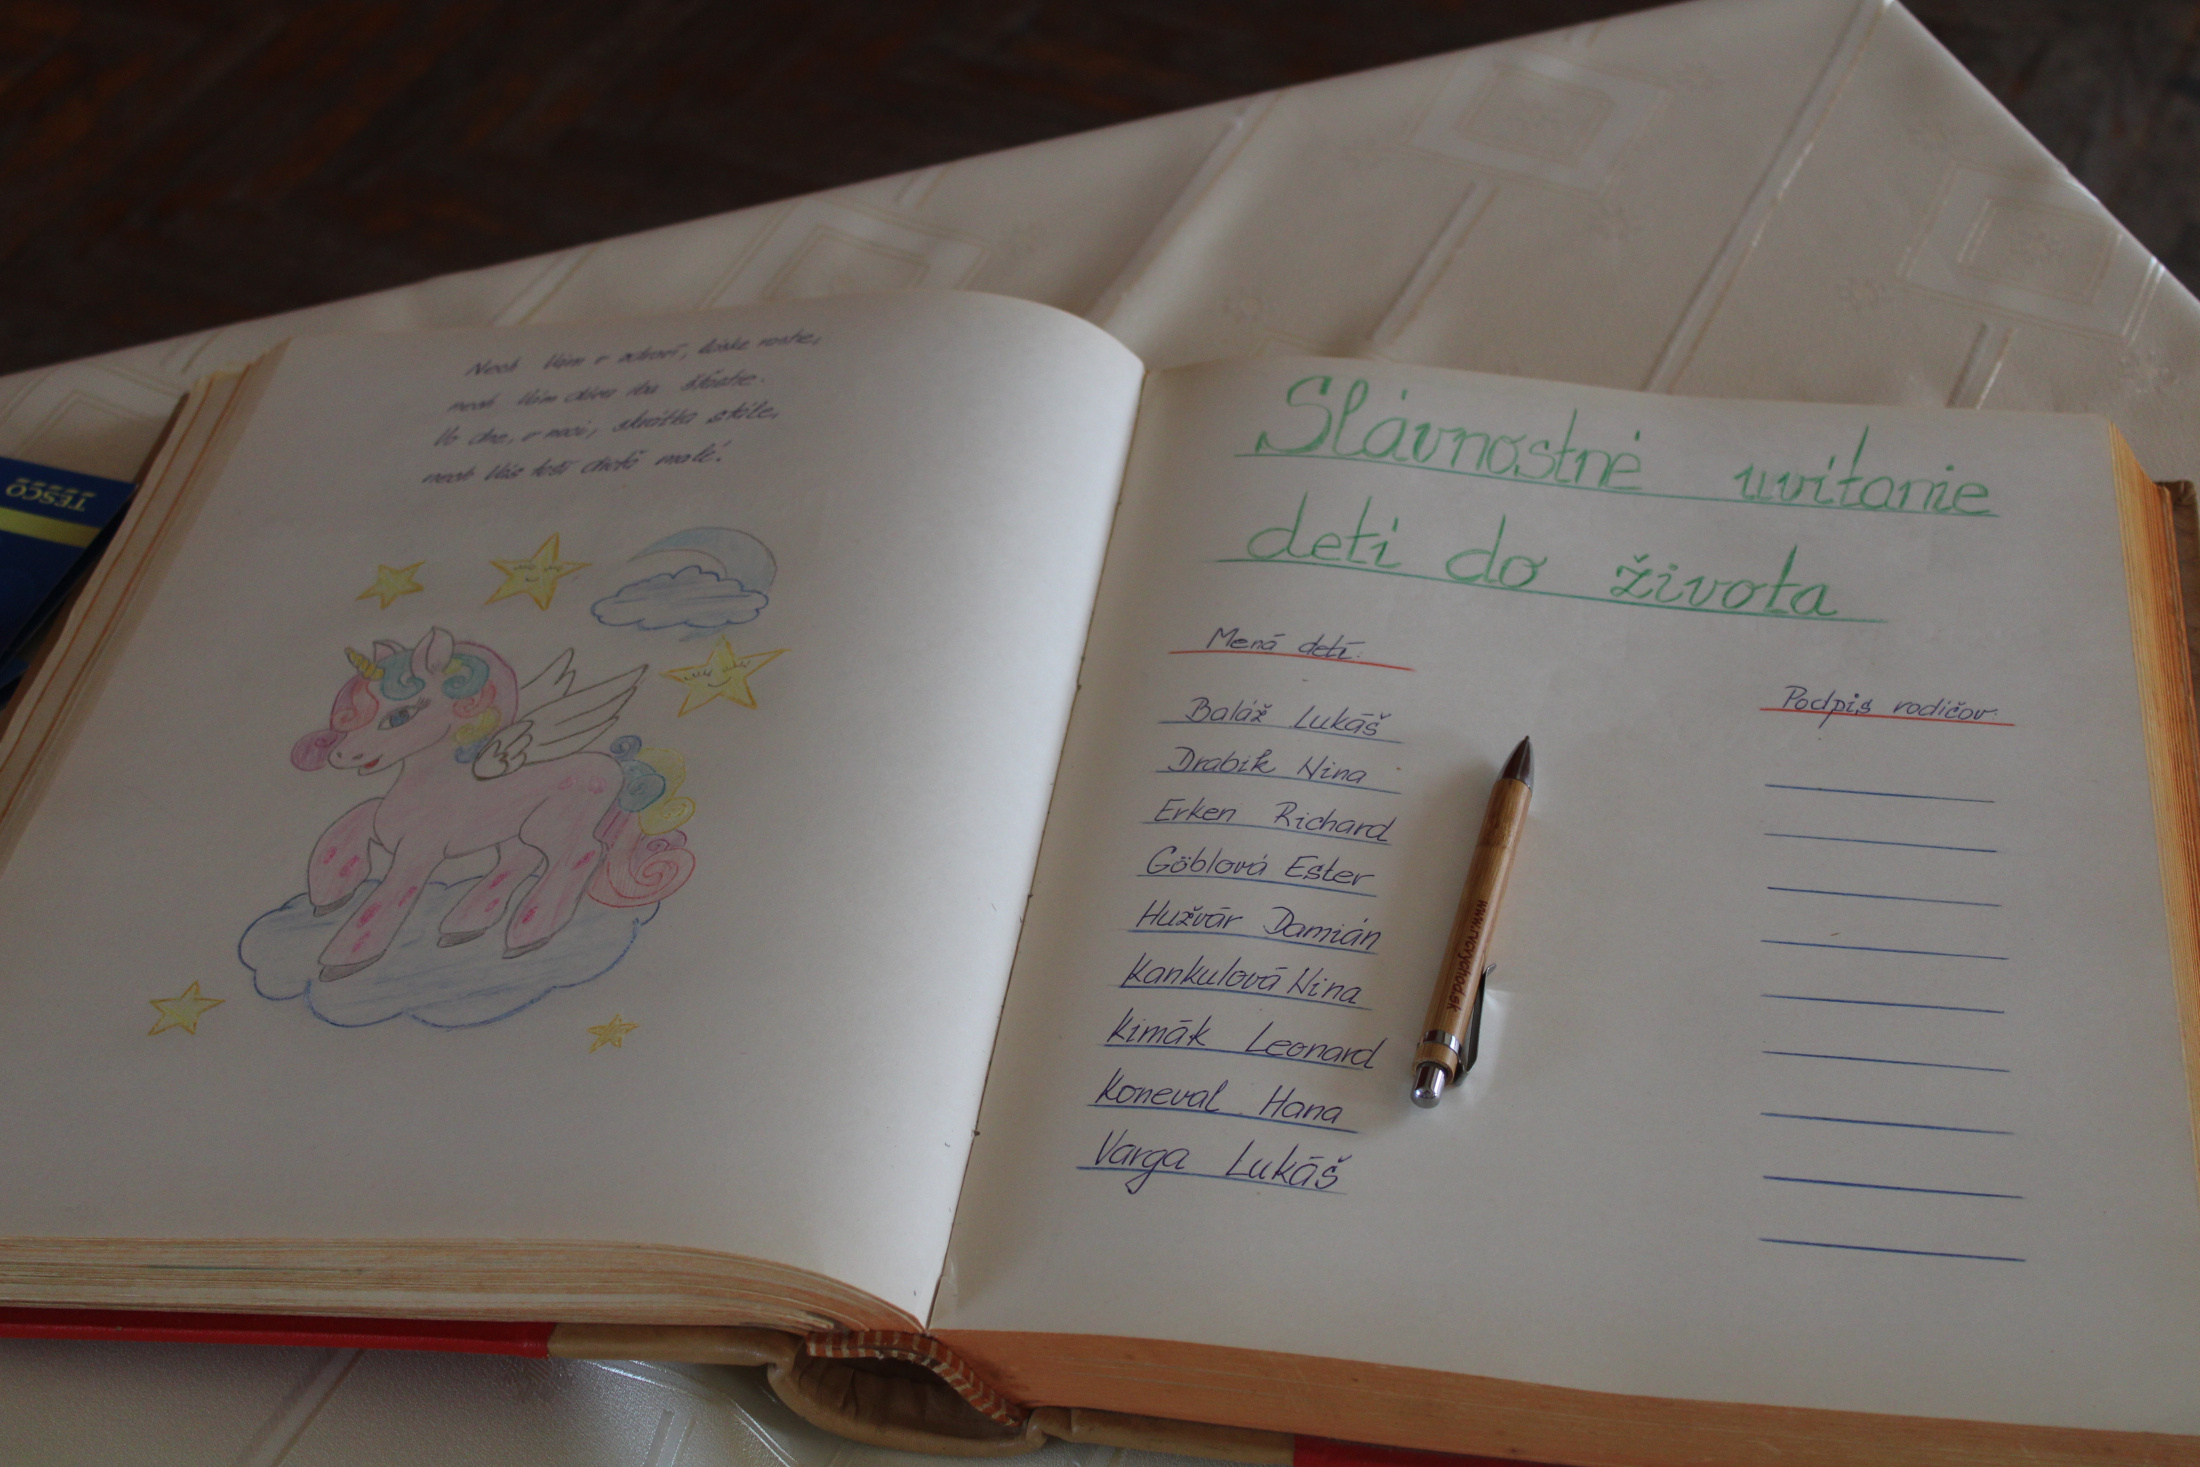 Nech Vám v zdraví, láske rastie,
nech Vám dáva iba šťastie.
Vo dne, v noci, skrátka stále,
nech Vás teší malé!
TESCO
Slávnostné uvítanie
deti do života
Mená detí:
Podpis rodičov:
Baláž Lukáš
Drabik Nina
Erken Richard
Göblová Ester
Hužvár Damián
Kankulová Nina
Kimák Leonard
Koneval Hana
Varga Lukáš